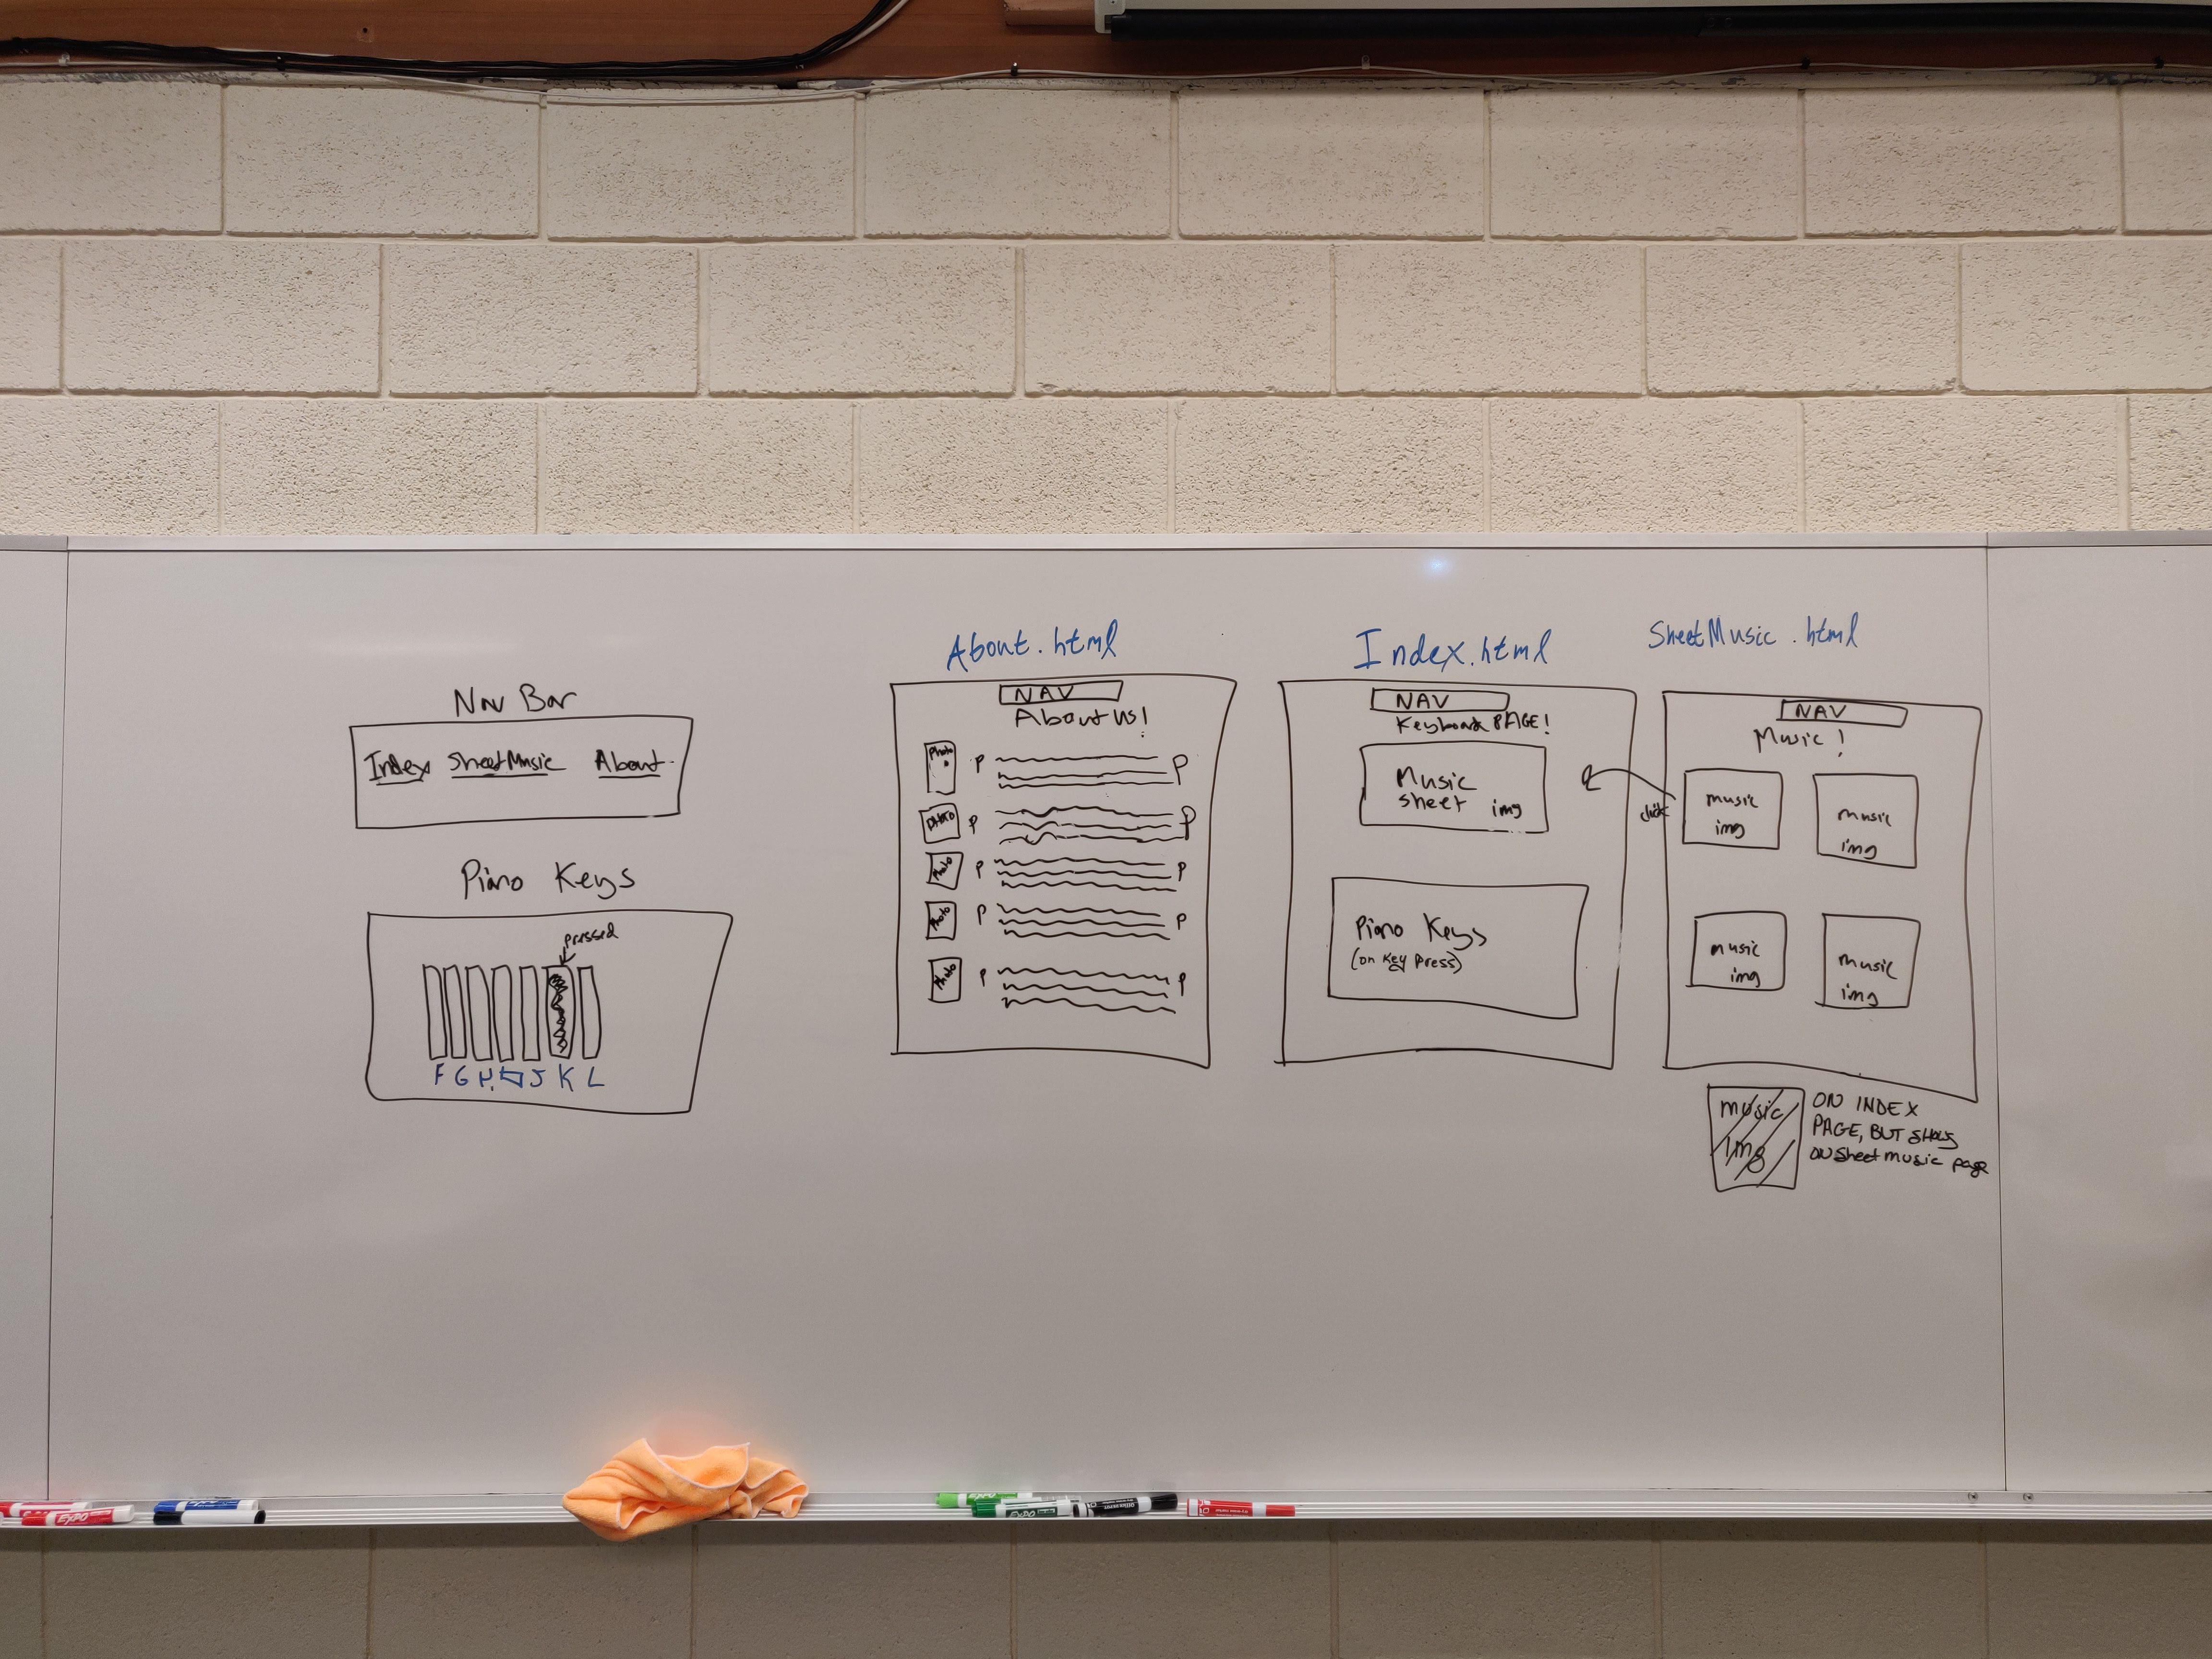 Nav Bar
Index SheetMusic About
Piano Keys
pressed
F G H J K L
About.html
NAV
About us!
Photo P P
Photo P P
Photo P P
Photo P P
Photo P P
Index.html
NAV
Keyboard PAGE!
Music
sheet img
Piano Keys
(on Key Press)
SheetMusic.html
NAV
Music!
click
music
img
music
img
music
img
music
img
music
img
ON INDEX
PAGE, BUT SHOWS
ON Sheet music page
EXPO
EXPO
EXPO